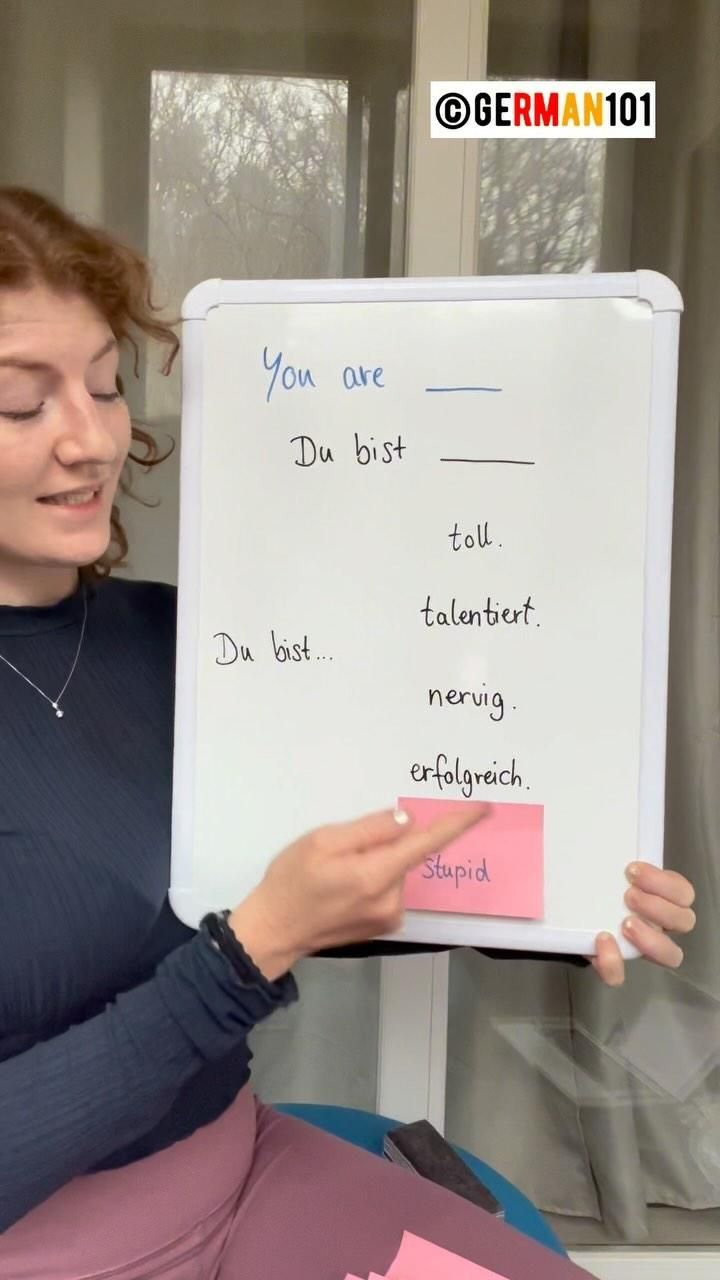 ©GERMAN101
You are ____
Du bist ____
toll.
talentiert.
Du bist...
nervig.
erfolgreich.
stupid